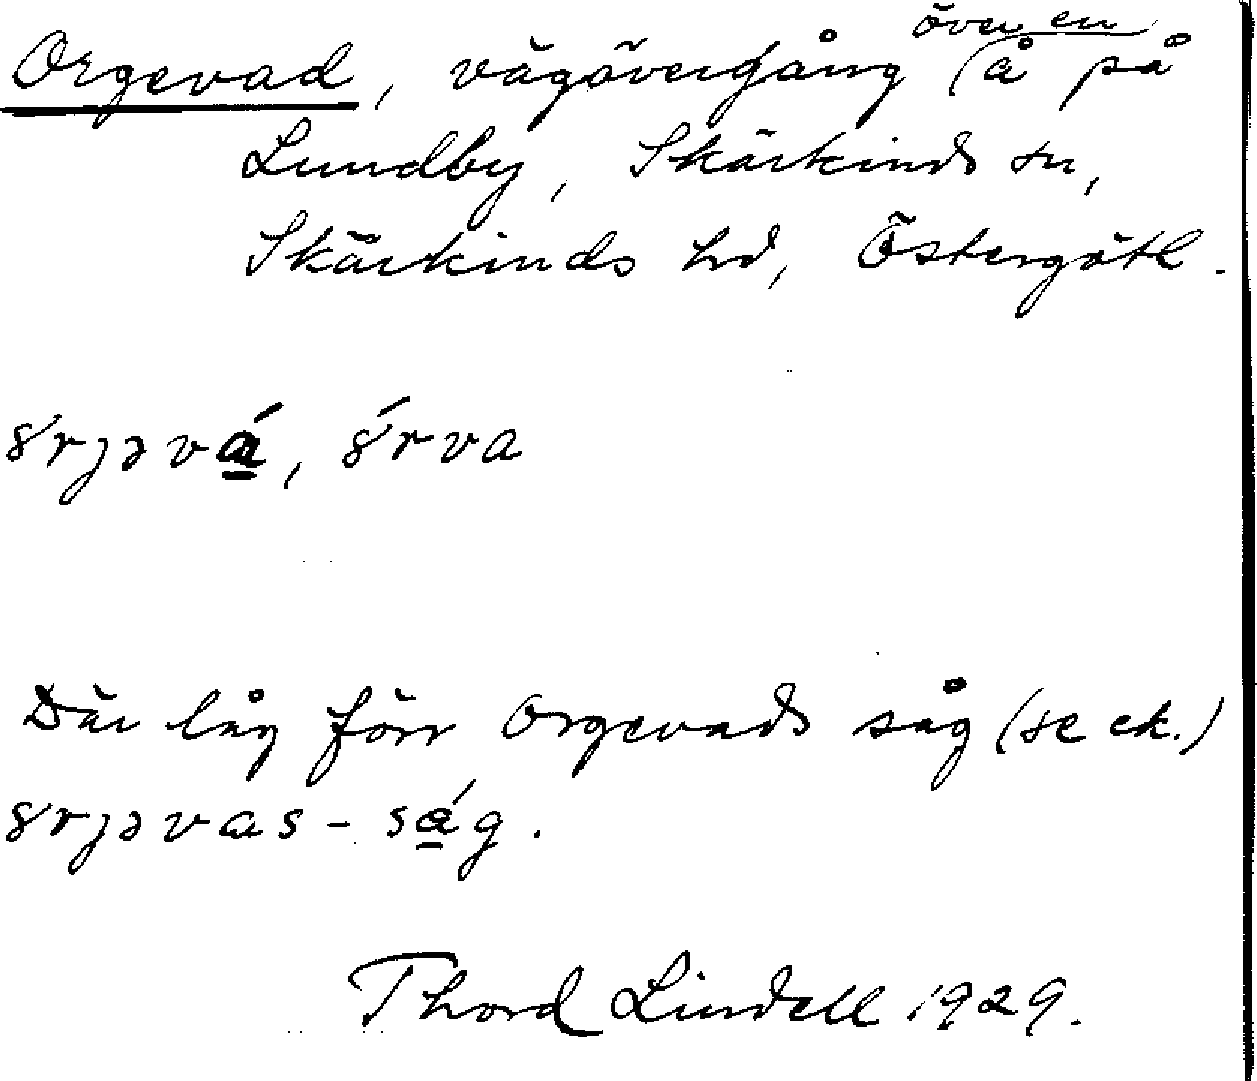 Orgevad, vägövergång över en å på
Lundby, Skärkinds sn,
Skärkinds hd, Östergötl.
ȣrȷəvá, ȣ́rva
Där låg förr Orgevads såg (se ek.)
ȣrȷəvas-ság.
Thord Lindell 1929.